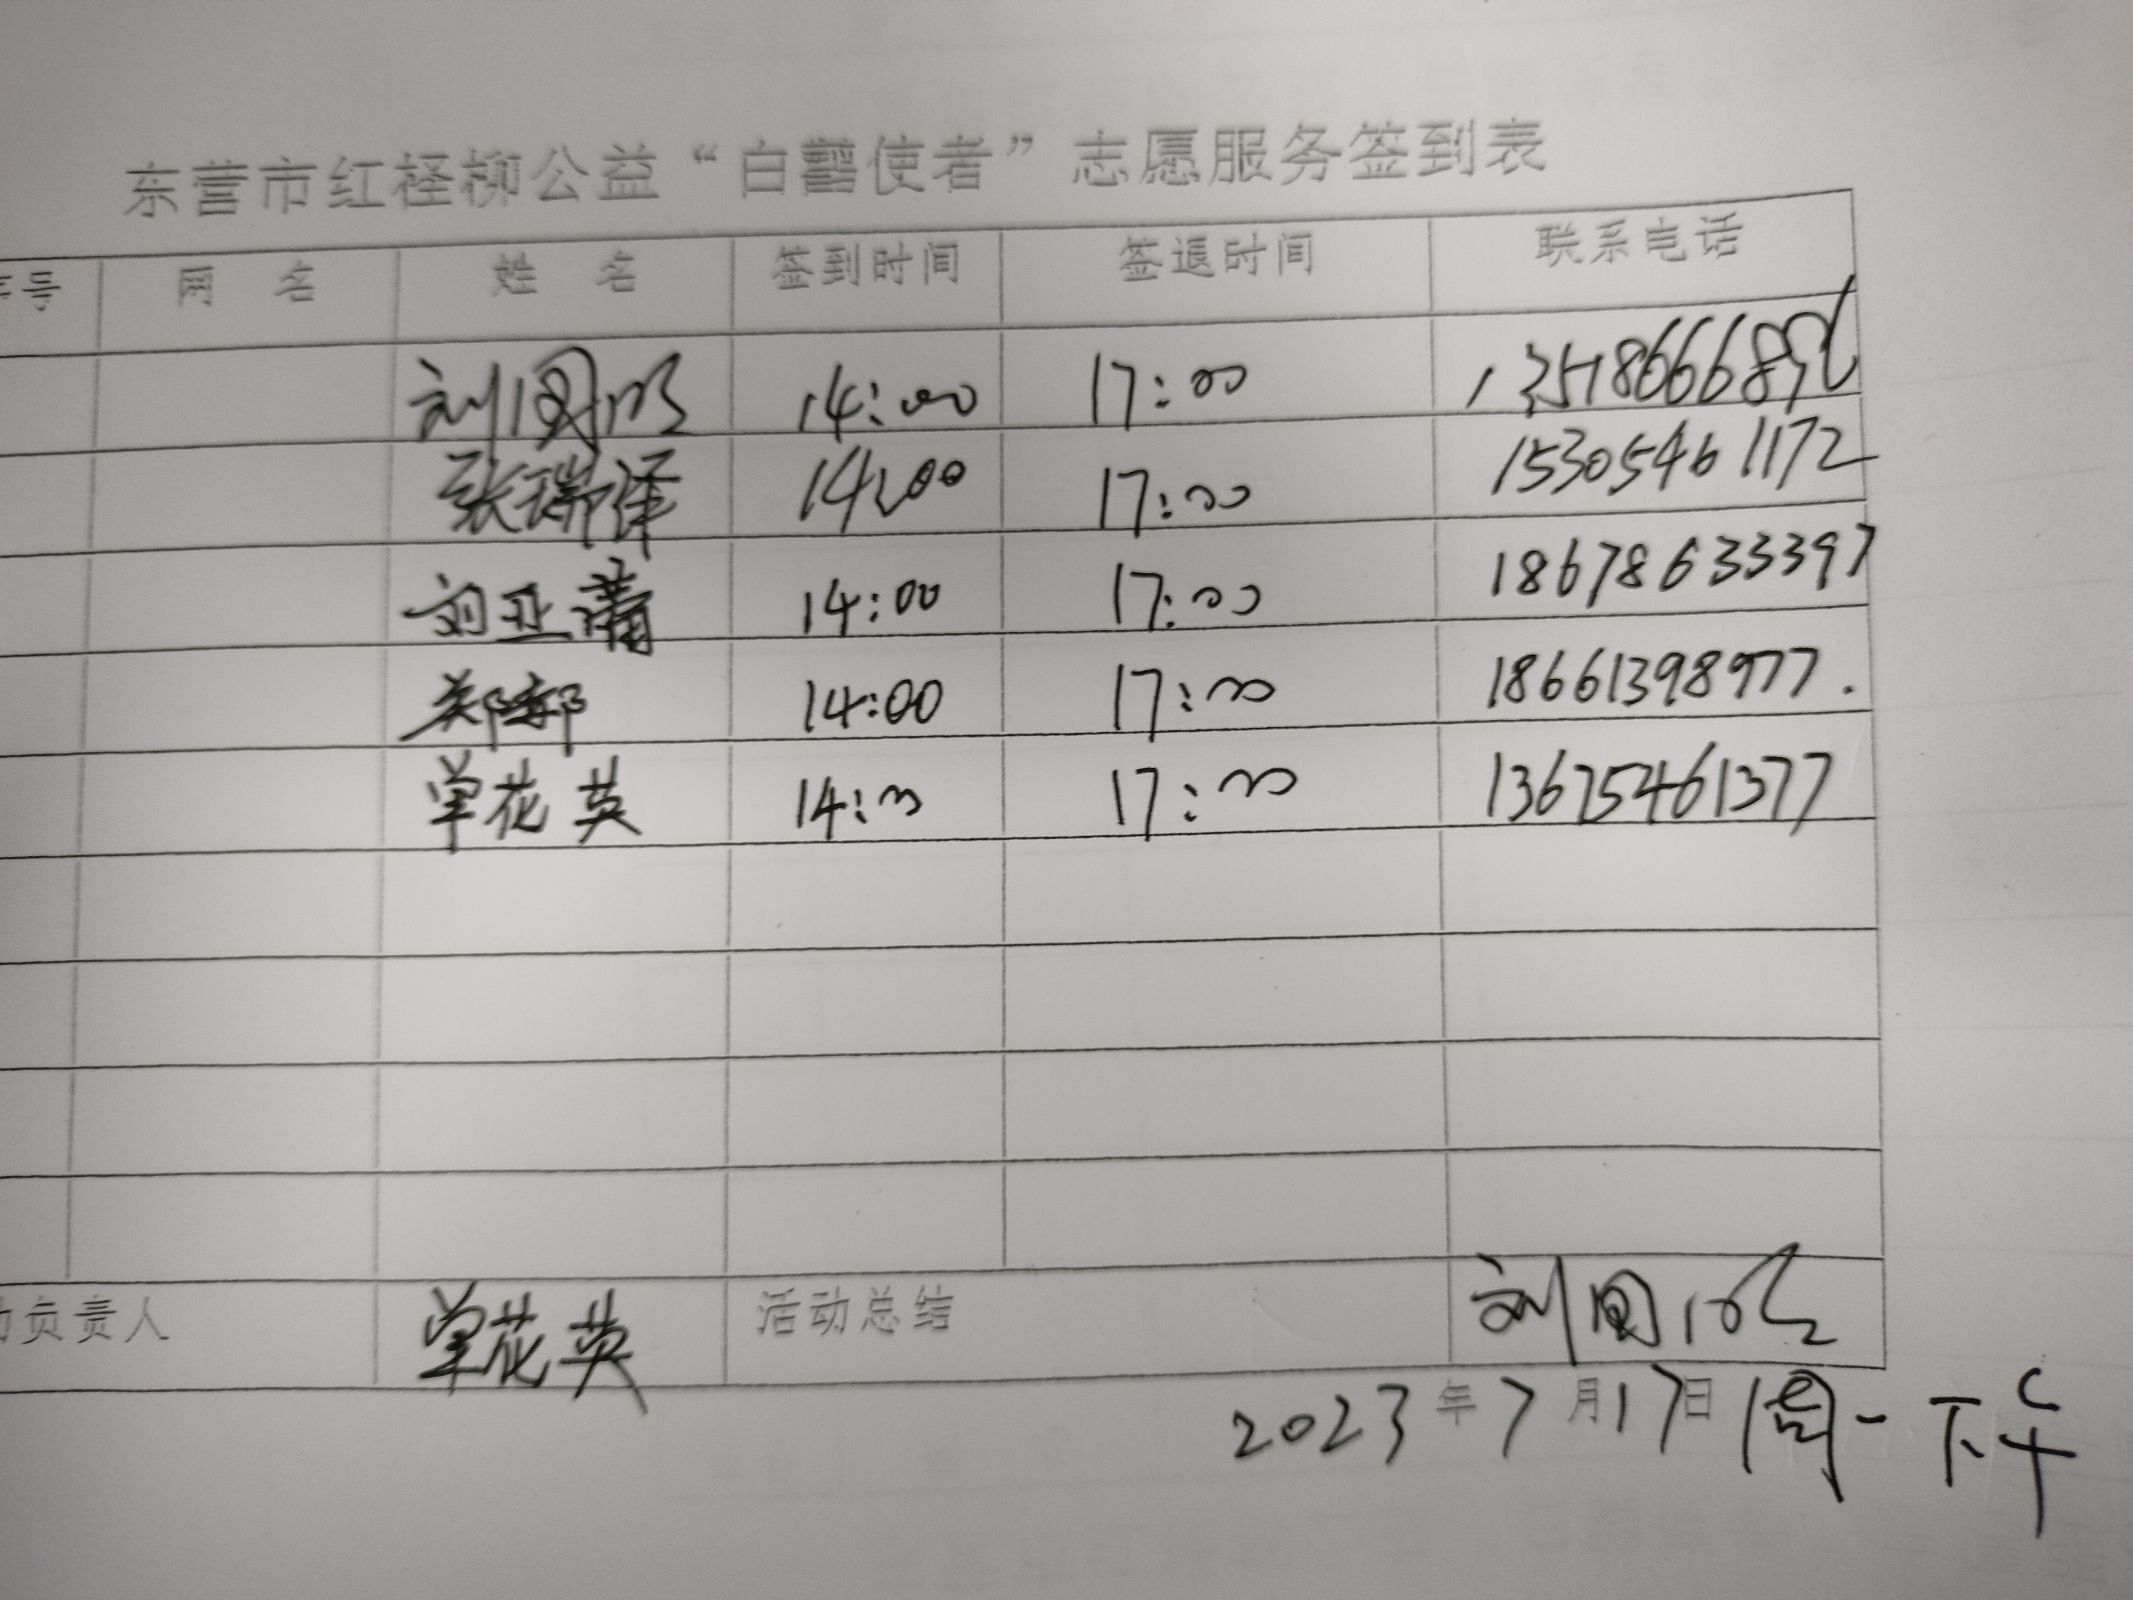 东营市红柽柳公益“白鹭使者”志愿服务签到表
序号 网 名 姓 名 签到时间 签退时间 联系电话
14:00 17:00
张瑞泽 14:00 17:00 15305461172
刘亚 14:00 17:00 18678633397
郑郝 14:00 17:00 18661398977.
单花英 14:00 17:00 13675461377
负责人 单花英 活动总结 刘国
2023年7月17日 周一下午